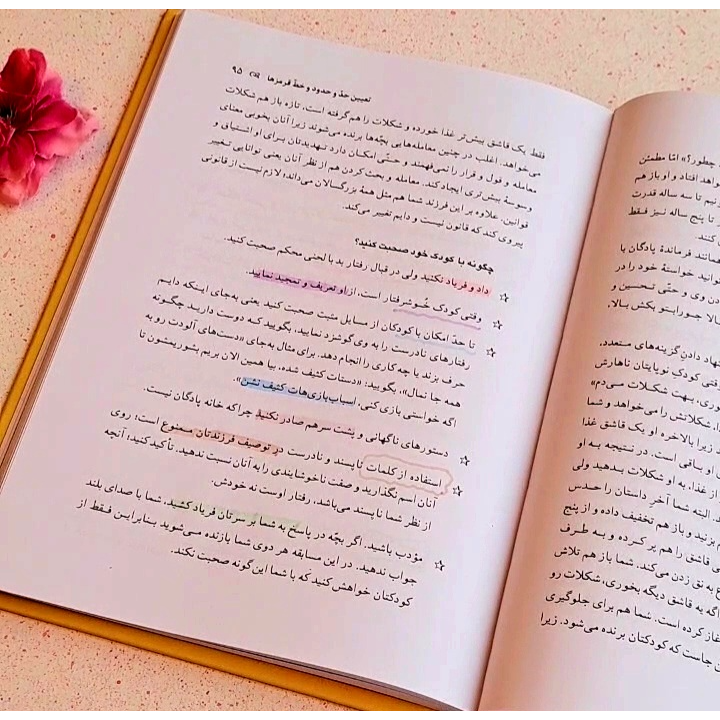 تعیین حدّ و حدود و خطّ قرمزها ۹۵
فقط یک قاشق بیش‌تر غذا خورده و شکلات را هم گرفته است. تازه باز هم شکلات
می‌خواهد. اغلب در چنین معامله‌هایی بچّه‌ها برنده می‌شوند زیرا آنان بخوبی معنای
معامله و قول و قرار را نمی‌فهمند و حتّی امکان دارد تهدیدتان برای او اشتیاق و
وسوسهٔ بیش‌تری ایجاد کند. معامله و بحث کردن هم از نظر آنان یعنی توانایی تغییر
قوانین. علاوه بر این فرزند شما هم مثل همهٔ بزرگسالان می‌داند؛ لازم نیست از قانونی
پیروی کند که قانون نیست و دایم تغییر می‌کند.
چگونه با کودک خود صحبت کنید؟
☆ داد و فریاد نکنید ولی در قبال رفتار بد با لحنی محکم صحبت کنید.
☆ وقتی کودک خوشرفتار است، از او تعریف و تمجید نمایید.
☆ تا حدّ امکان با کودکان از مسایل مثبت صحبت کنید یعنی به‌جای اینکه دایم
رفتارهای نادرست را به وی گوشزد نمایید، بگویید که دوست دارید چگونه
حرف بزند یا چه کاری را انجام دهد. برای مثال به‌جای «دست‌های آلودت رو به
همه جا نمال»، بگویید: «دستات کثیف شده، بیا همین الان بریم بشوریمشون تا
اگه خواستی بازی کنی، اسباب‌بازی‌هات کثیف نشن».
☆ دستورهای ناگهانی و پشت سر هم صادر نکنید چراکه خانه پادگان نیست.
☆ استفاده از کلمات ناپسند و نادرست در توصیف فرزندتان ممنوع است؛ روی
آنان اسم نگذارید و صفت ناخوشایندی را به آنان نسبت ندهید. تأکید کنید؛ آنچه
از نظر شما ناپسند می‌باشد، رفتار اوست نه خودش.
☆ مؤدب باشید. اگر بچّه در پاسخ به شما بر سرتان فریاد کشید، شما با صدای بلند
جواب ندهید. در این مسابقه هر دوی شما بازنده می‌شوید بنابراین فقط از
کودکتان خواهش کنید که با شما این‌گونه صحبت نکند.
چطور؟» امّا مطمئن
خواهد افتاد و او باز هم
تا سه ساله قدرت
تا پنج ساله نیز فقط
کنند.
همانند فرماندهٔ پادگان با
خواستهٔ خود را در
وی و حتّی تحسین و
جورابتو بکش بالا.
دادن گزینه‌های متعدد.
کودک نوپایتان ناهارش
بهت شکلات می‌دم»
شکلاتش را می‌خواهد و شما
زیرا بالاخره او یک قاشق غذا
او باقی است. در نتیجه به او
از غذا، به او شکلات بدهید ولی
البته شما آخر داستان را حدس
بزنید و باز هم تخفیف داده و از پنج
قاشق را هم پر کرده و به طرف
به نق زدن می‌کند. شما باز هم تلاش
اگه یه قاشق دیگه بخوری، شکلات رو
کرده است. شما هم برای جلوگیری
جاست که کودکتان برنده می‌شود. زیرا